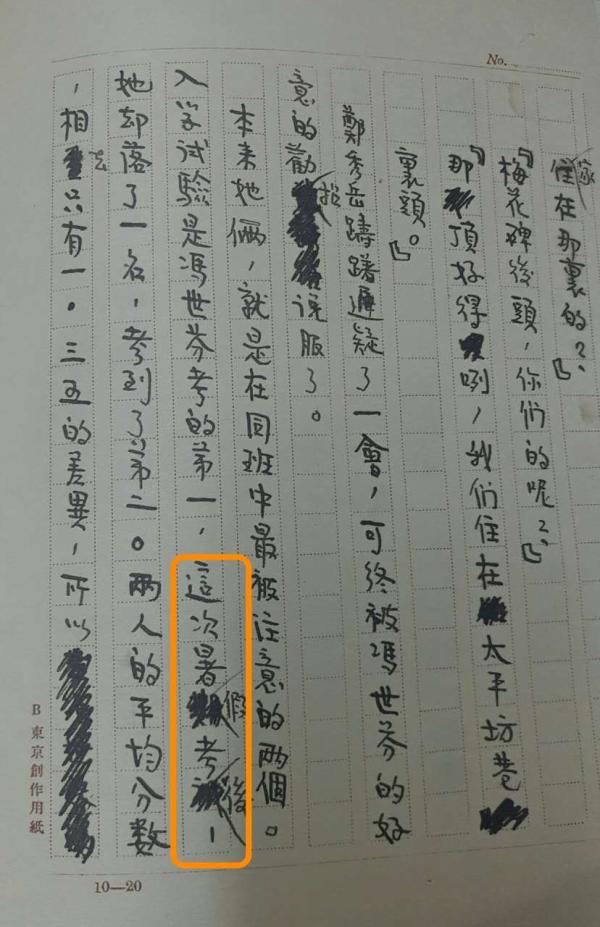 No.
住在那裏的？』
家
『梅花碑後頭，你們的呢？』
『那頂好得咧，我們住在太平坊巷
裏頭。』
鄭秀岳躊躇遲疑了一會，可終被馮世芬的好
意的勸說服了。
本来她倆，就是在同班中最被注意的两個。
入学試驗是馮世芬考的第一，這次暑假考後，
她却落了一名，考到了第二。两人的平均分数
，相去只有一。三五的差異，所以
B 東京創作用紙
10—20